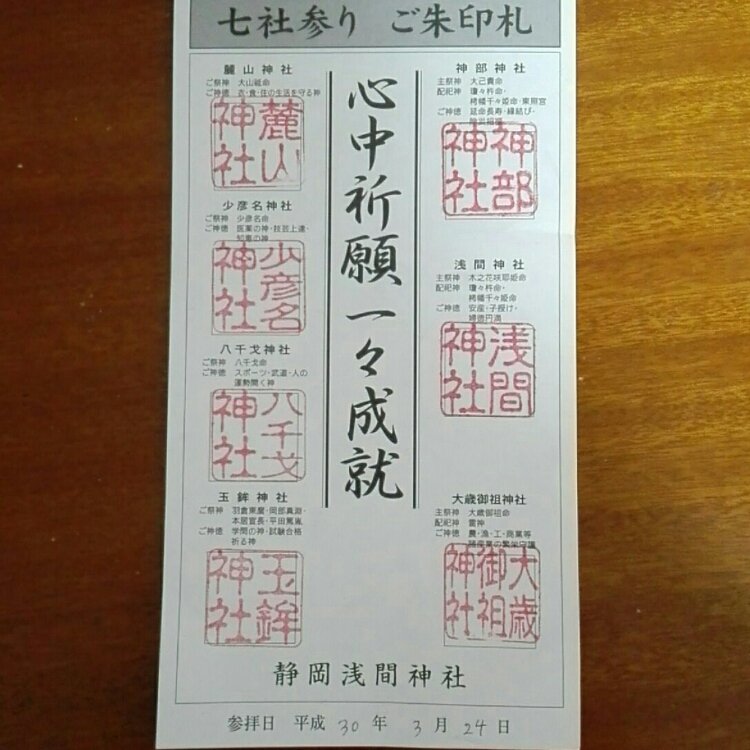 七社参り ご朱印札
神部神社
主祭神 大己貴命
配祀神 瓊々杵命・
栲幡千々姫命・東照宮
ご神徳 延命長寿・縁結び・
神部神社
浅間神社
主祭神 木之花咲耶姫命
配祀神 瓊々杵命・
栲幡千々姫命
ご神徳 安産・子授け・
婦徳円満
浅間神社
大歳御祖神社
主祭神 大歳御祖命
配祀神 雷神
ご神徳 農・漁・工・商業等
諸産業の繁栄守護
大歳御祖神社
心中祈願一々成就
麓山神社
ご祭神 大山祇命
ご神徳 衣・食・住の生活を守る神
麓山神社
少彦名神社
ご祭神 少彦名命
ご神徳 医薬の神・技芸上達・
知恵の神
少彦名神社
八千戈神社
ご祭神 八千戈命
ご神徳 スポーツ・武道・人の
運勢開く神
八千戈神社
玉鉾神社
ご祭神 羽倉東麿・岡部真淵・
本居宣長・平田篤胤
ご神徳 学問の神・試験合格
祈る神
玉鉾神社
静岡浅間神社
参拝日 平成 30 年 3 月 24 日